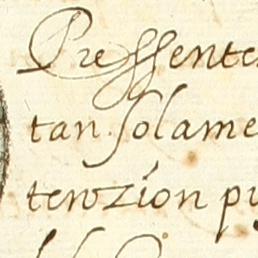 Pressente
tan solame
tenzion pu